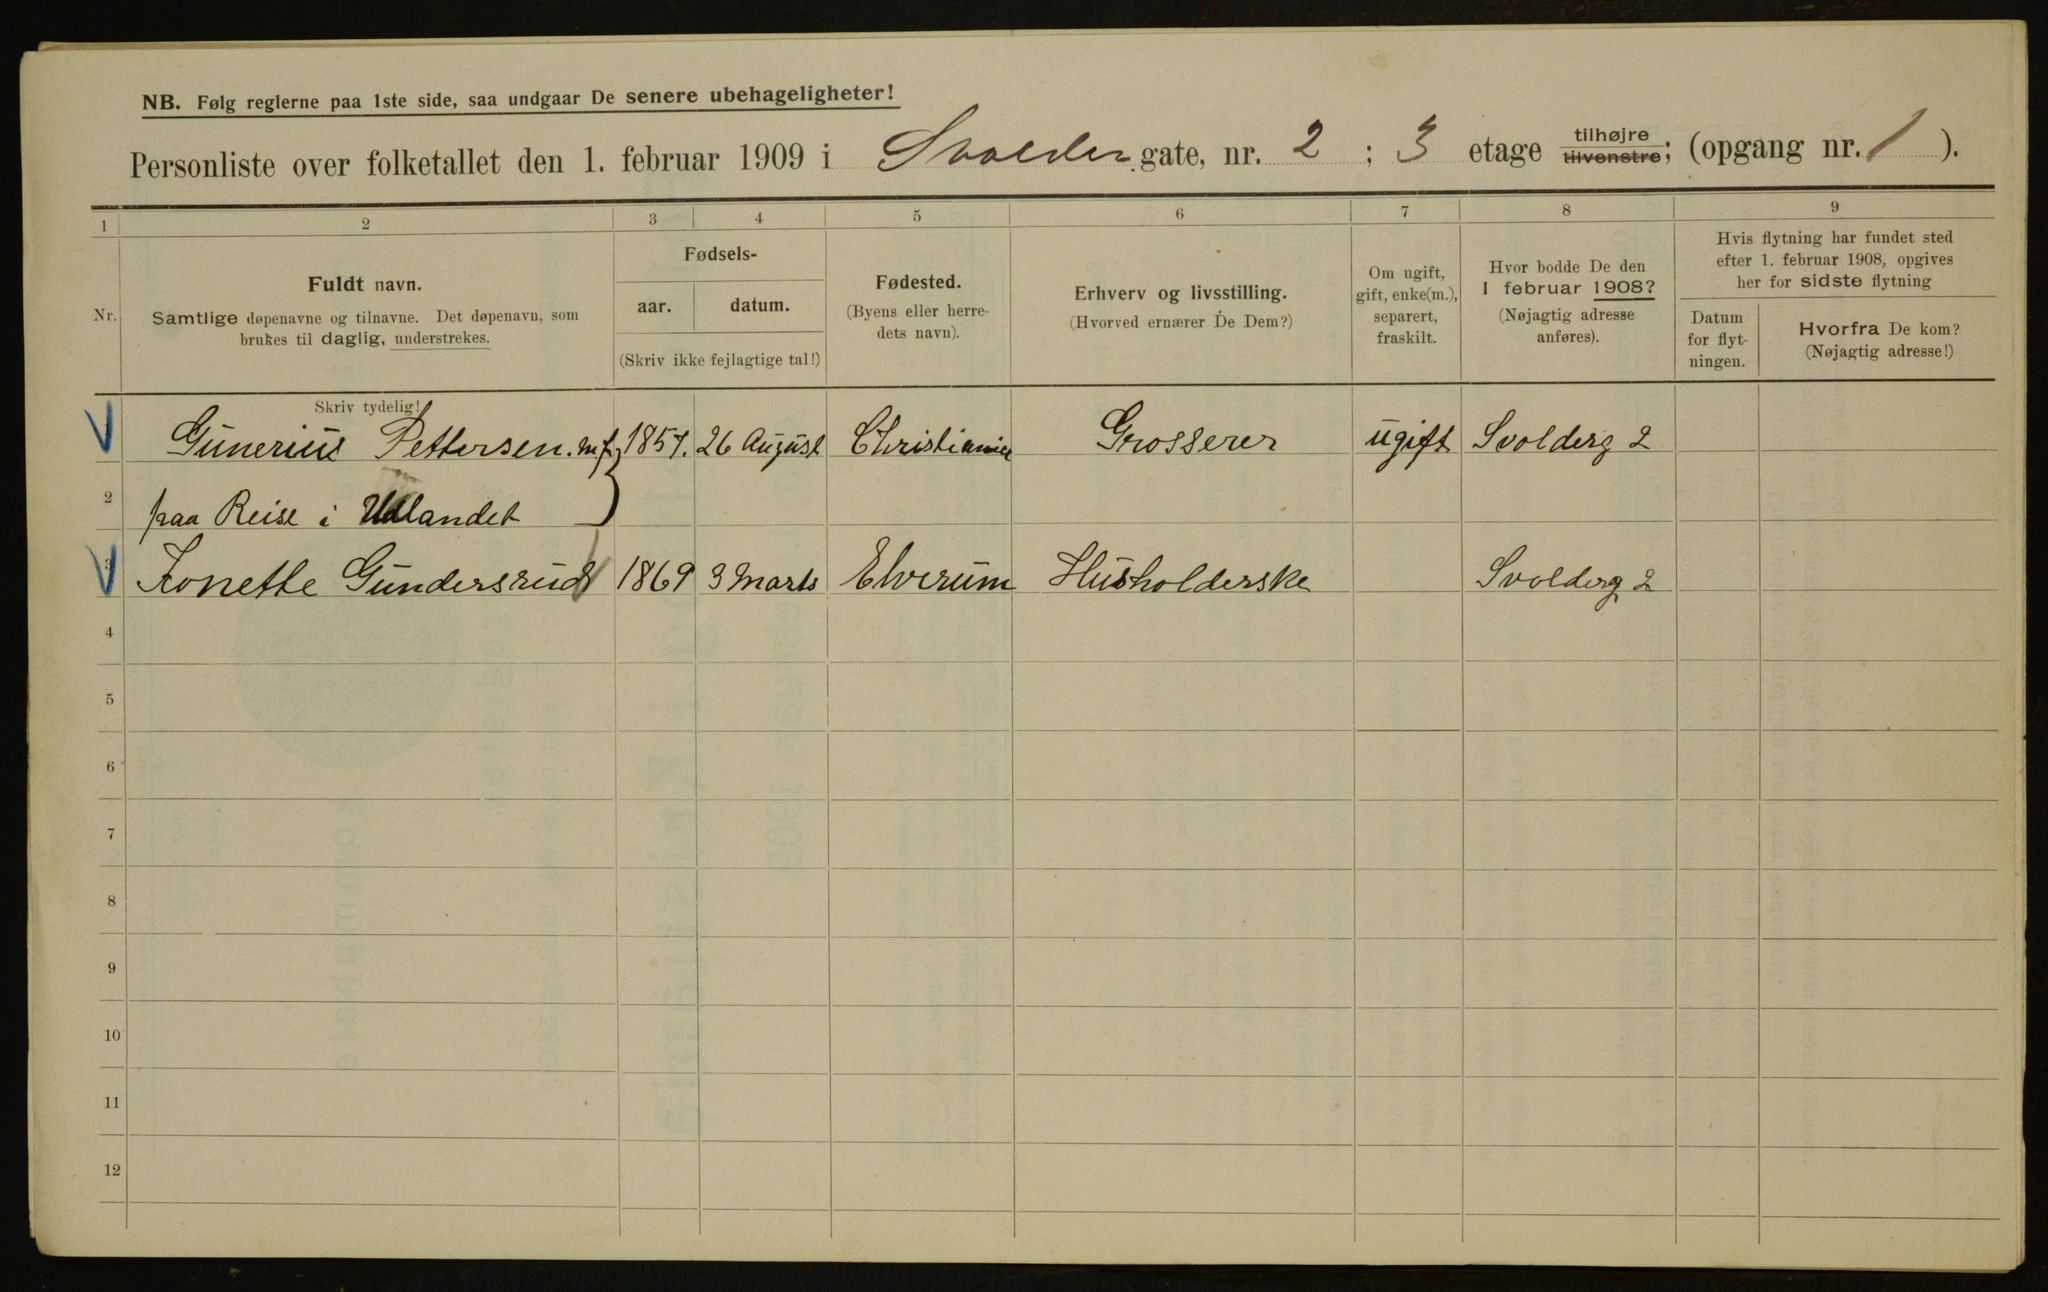 NB. Følg reglerne paa 1ste side, saa undgaar De senere ubehageligheter!
Personliste over folketallet den 1. februar 1909 i Svolder gate, nr. 2 ; 3 etage tilhøjre tilvenstre; (opgang nr. 1 ).
1 2 3 4 5 6 7 8 9
Nr.
Fuldt navn.
Samtlige døpenavne og tilnavne. Det døpenavn, som
brukes til daglig, understrekes.
Fødsels-
aar. datum.
(Skriv ikke fejlagtige tal!)
Fødested.
(Byens eller herre-
dets navn).
Erhverv og livsstilling.
(Hvorved ernærer De Dem?)
Om ugift,
gift, enke(m.),
separert,
fraskilt.
Hvor bodde De den
1 februar 1908?
(Nøjagtig adresse
anføres).
Hvis flytning har fundet sted
efter 1. februar 1908, opgives
her for sidste flytning
Datum
for flyt-
ningen.
Hvorfra De kom?
(Nøjagtig adresse!)
Skriv tydelig!
Gunerius Pettersen. m.f. 1857. 26 August Christiania Grosserer ugift Svolderg 2
2 paa Reise i Udlandet
3 Konette Gundersrud 1869 3 Marts Elverum Husholderske Svolderg 2
4
5
6
7
8
9
10
11
12